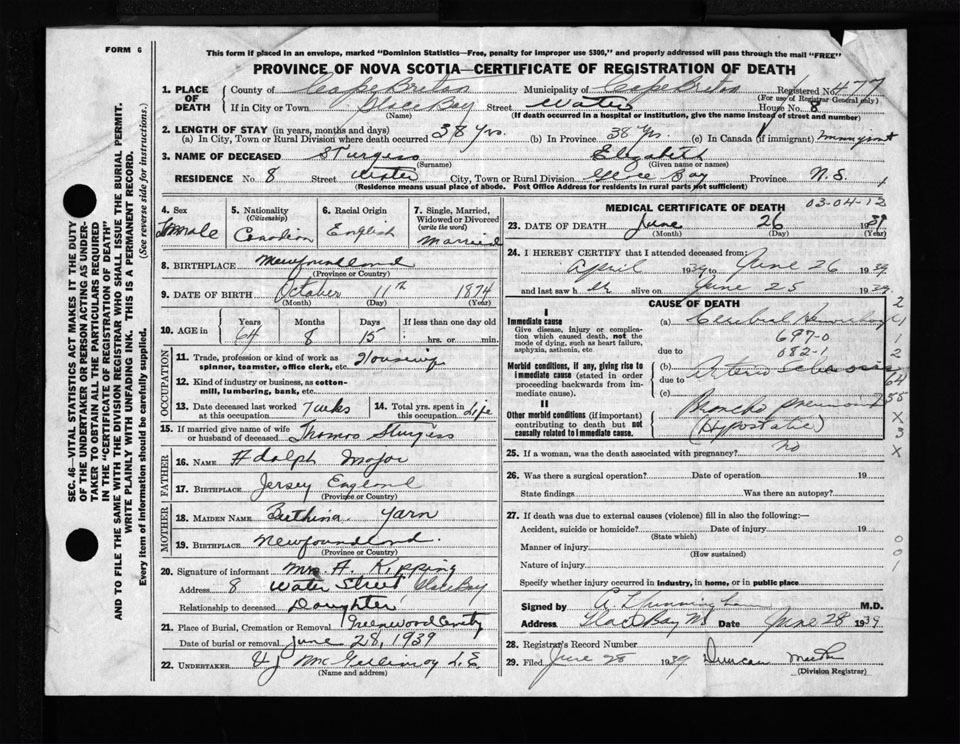 FORM 6
This form if placed in an envelope, marked "Dominion Statistics—Free, penalty for improper use $300," and properly addressed will pass through the mail "FREE"
PROVINCE OF NOVA SCOTIA—CERTIFICATE OF REGISTRATION OF DEATH
SEC. 46—VITAL STATISTICS ACT MAKES IT THE DUTY
OF THE UNDERTAKER OR PERSON ACTING AS UNDER-
TAKER TO OBTAIN ALL THE PARTICULARS REQUIRED
IN THE "CERTIFICATE OF REGISTRATION OF DEATH"
AND TO FILE THE SAME WITH THE DIVISION REGISTRAR WHO SHALL ISSUE THE BURIAL PERMIT.
WRITE PLAINLY WITH UNFADING INK. THIS IS A PERMANENT RECORD.
Every item of information should be carefully supplied. (See reverse side for instructions.)
1. PLACE OF DEATH County of Cape Breton Municipality of Cape Breton Registered No. 477
(For use of Registrar General only)
If in City or Town Glace Bay Street Water House No. 8
(Name) (If death occurred in a hospital or institution, give the name instead of street and number)
2. LENGTH OF STAY (in years, months and days)
(a) In City, Town or Rural Division where death occurred 38 Yrs. (b) In Province 38 Yrs. (c) In Canada (if immigrant) Immigrant
3. NAME OF DECEASED Sturgess Elizabeth
(Surname) (Given name or names)
RESIDENCE No 8 Street Water City, Town or Rural Division Glace Bay Province N.S.
(Residence means usual place of abode. Post Office Address for residents in rural parts not sufficient)
4. Sex
Female
5. Nationality
(Citizenship)
Canadian
6. Racial Origin
English
7. Single, Married, Widowed or Divorced
(write the word)
Married
8. BIRTHPLACE Newfoundland
(Province or Country)
9. DATE OF BIRTH October 11th 1874
(Month) (Day) (Year)
10. AGE in Years Months Days If less than one day old
64 8 15 hrs. or min.
OCCUPATION
11. Trade, profession or kind of work as
spinner, teamster, office clerk, etc. Housewife
12. Kind of industry or business, as cotton-
mill, lumbering, bank, etc.
13. Date deceased last worked at this occupation 14. Total yrs. spent in this occupation Life
15. If married give name of wife
or husband of deceased Thomas Sturgess
FATHER
16. NAME Adolph Major
17. BIRTHPLACE Jersey England
(Province or Country)
MOTHER
18. MAIDEN NAME Yarn
19. BIRTHPLACE Newfoundland.
(Province or Country)
20. Signature of informant Mrs. A. Kipping
Address 8 Water Street Glace Bay
Relationship to deceased Daughter
21. Place of Burial, Cremation or Removal Greenwood
Date of burial or removal June 28, 1939
22. UNDERTAKER
(Name and address)
MEDICAL CERTIFICATE OF DEATH
03-04-12
23. DATE OF DEATH June 26 1939
(Month) (Day) (Year)
24. I HEREBY CERTIFY that I attended deceased from:
April 1939 to June 26 1939
and last saw her alive on June 25 1939
CAUSE OF DEATH
I
Immediate cause
Give disease, injury or complica-
tion which caused death, not the
mode of dying, such as heart failure,
asphyxia, asthenia, etc.
(a) Cerebral Hemorrhage
697-0
due to 082-1
Morbid conditions, if any, giving rise to
immediate cause (stated in order
proceeding backwards from im-
mediate cause).
(b) Arterio Sclerosis
due to
(c)
II
Other morbid conditions (if important)
contributing to death but not
causally related to immediate cause.
Broncho pneumonia
(Hypostatic)
25. If a woman, was the death associated with pregnancy? no
26. Was there a surgical operation? Date of operation 19
State findings Was there an autopsy?
27. If death was due to external causes (violence) fill in also the following:—
Accident, suicide or homicide? Date of injury 19
(State which)
Manner of injury
(How sustained)
Nature of injury
Specify whether injury occurred in industry, in home, or in public place
Signed by M.D.
Address Glace Bay NS Date June 28 1939
28. Registrar's Record Number
29. Filed June 28 1939 Duncan
(Division Registrar)